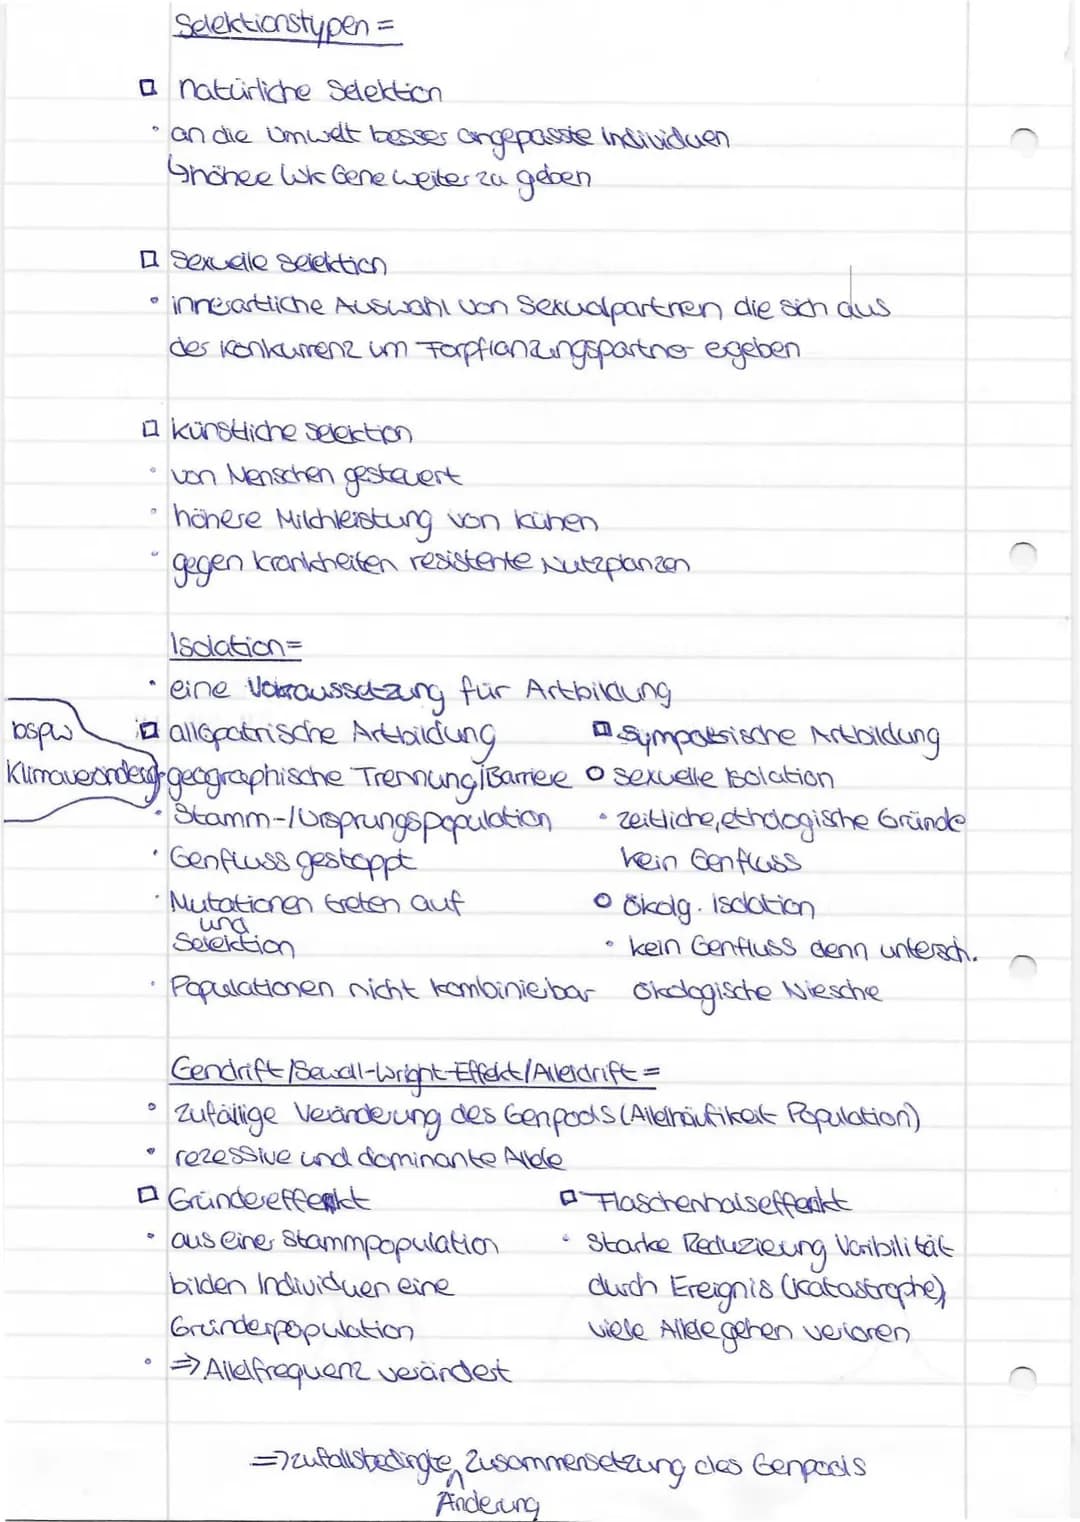 Selektionstypen =
natürliche Selektion
an die Umwelt besser angepasste Individuen
↳ höhee Wk Gene weiter zu geben
Sexuelle Selektion
innerartliche Auswahl von Sexualpartnern die sich aus
der Konkurrenz um Forpflanzungspartner egeben
künstliche Selektion
von Menschen gesteuert
höhere Milchleistung von Kühen
gegen Krankheiten resistente Nutzplanzen
Isolation=
eine Vorraussetzung für Artbildung
bspw
Klimaveränderg
allopatrische Artbildung
geographische Trennung/Barriere
Stamm-/Ursprungspopulation
Genfluss gestoppt
Mutationen treten auf
und
Selektion
Populationen nicht kombinierbar
Sympatrische Artbildung
sexuelle Isolation
zeitliche, ethologische Gründe
kein Genfluss
Ökolg. isolation
kein Genfluss denn untersch.
ökologische Niesche
Gendrift/Sewall-Wright-Effekt/Alleldrift =
zufällige Veränderung des Genpools (Allelhäufikeit Population)
rezessive und dominante Allele
Gründereffekt
aus einer Stammpopulation
bilden Individuen eine
Gründerpopulation
⇒ Allelfrequenz verändert
Flaschenhalseffekt
Starke Reduzierung Varibilität
durch Ereignis (Katastrophe),
viele Allele gehen verloren
⇒ zufallsbedingte Zusammensetzung des Genpools
Änderung